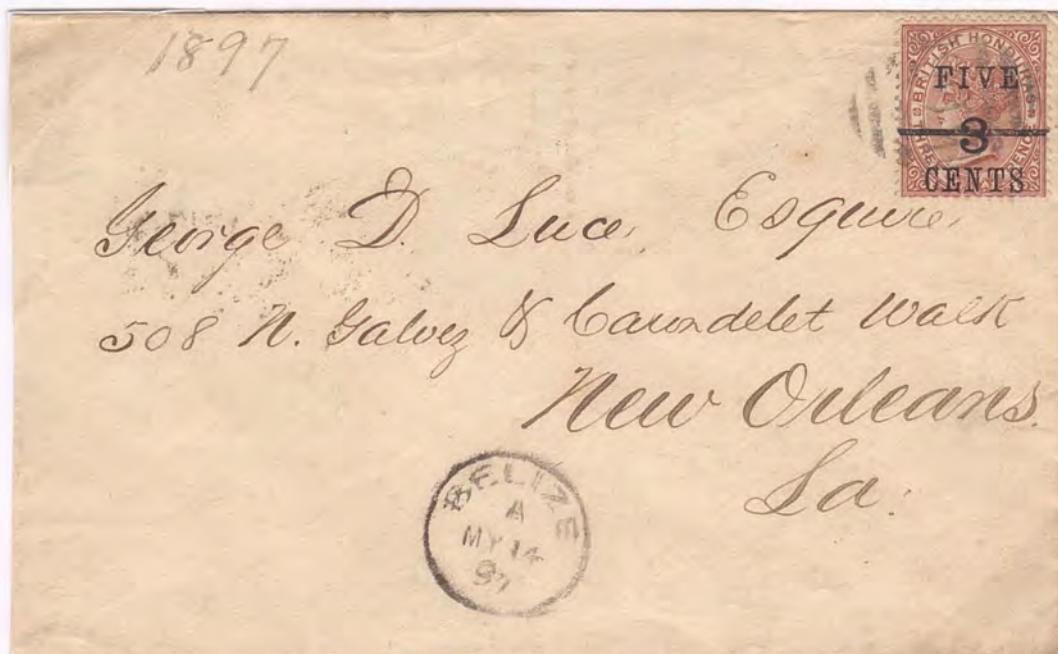 1897
BRITISH HONDURAS
FIVE
3
CENTS
THREE PENCE
George D. Luce, Esquire,
508 N. Galvez & Carondelet Walk
New Orleans.
La.
BELIZE
A
MY 14
97